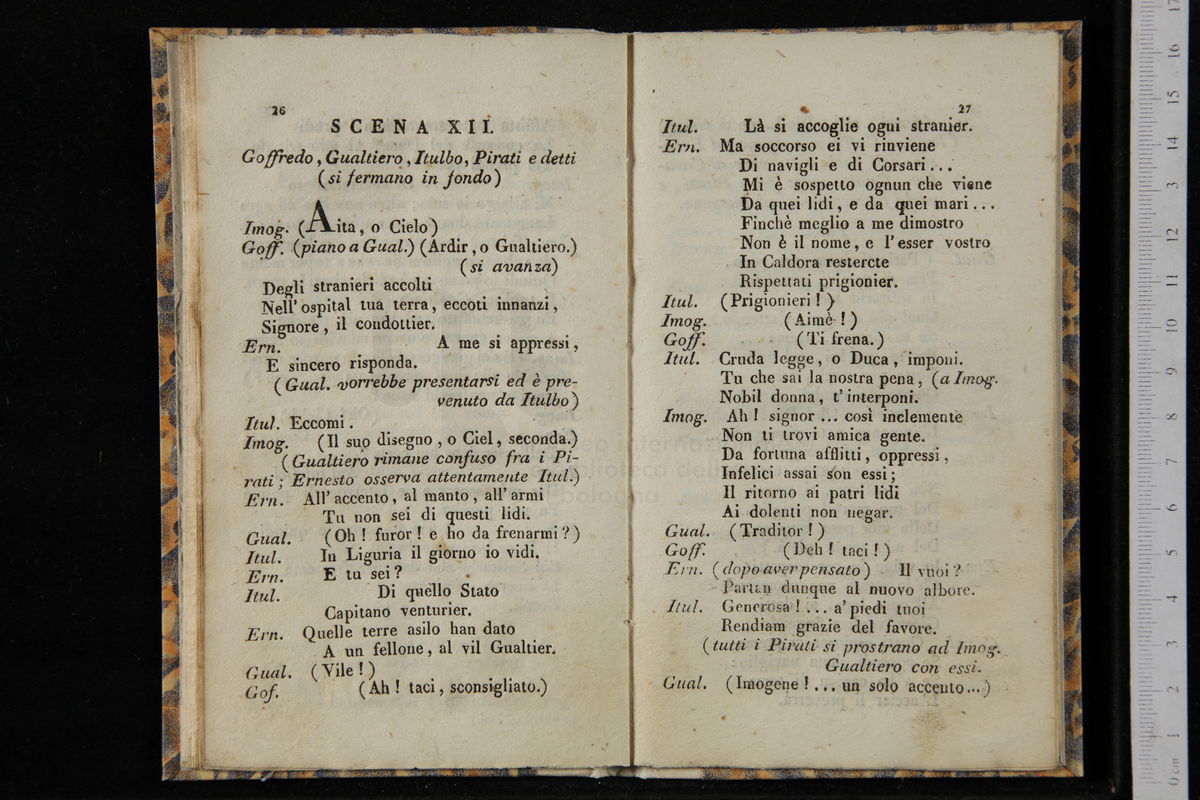 26
SCENA XII.
Goffredo, Gualtiero, Itulbo, Pirati e detti
(si fermano in fondo)
Imog. (Aita, o Cielo)
Goff. (piano a Gual.) (Ardir, o Gualtiero.)
(si avanza)
Degli stranieri accolti
Nell' ospital tua terra, eccoti innanzi,
Signore, il condottier.
Ern. A me si appressi,
E sincero risponda.
(Gual. vorrebbe presentarsi ed è pre-
venuto da Itulbo)
Itul. Eccomi.
Imog. (Il suo disegno, o Ciel, seconda.)
(Gualtiero rimane confuso fra i Pi-
rati; Ernesto osserva attentamente Itul.)
Ern. All' accento, al manto, all' armi
Tu non sei di questi lidi.
Gual. (Oh! furor! e ho da frenarmi?)
Itul. In Liguria il giorno io vidi.
Ern. E tu sei?
Itul. Di quello Stato
Capitano venturier.
Ern. Quelle terre asilo han dato
A un fellone, al vil Gualtier.
Gual. (Vile!)
Gof. (Ah! taci, sconsigliato.)
27
Itul. Là si accoglie ogni stranier.
Ern. Ma soccorso ei vi rinviene
Di navigli e di Corsari...
Mi è sospetto ognun che viene
Da quei lidi, e da quei mari...
Finchè meglio a me dimostro
Non è il nome, e l' esser vostro
In Caldora resterete
Rispettati prigionier.
Itul. (Prigionieri!)
Imog. (Aimè!)
Goff. (Ti frena.)
Itul. Cruda legge, o Duca, imponi.
Tu che sai la nostra pena, (a Imog.
Nobil donna, t' interponi.
Imog. Ah! signor... così inclemente
Non ti trovi amica gente.
Da fortuna afflitti, oppressi,
Infelici assai son essi;
Il ritorno ai patri lidi
Ai dolenti non negar.
Gual. (Traditor!)
Goff. (Deh! taci!)
Ern. (dopo aver pensato) Il vuoi?
Partan dunque al nuovo albore.
Itul. Generosa!... a' piedi tuoi
Rendiam grazie del favore.
(tutti i Pirati si prostrano ad Imog.
Gualtiero con essi.
Gual. (Imogene!... un solo accento...)
17
16
15
14
13
12
11
10
9
8
7
6
5
4
3
2
1
0 cm